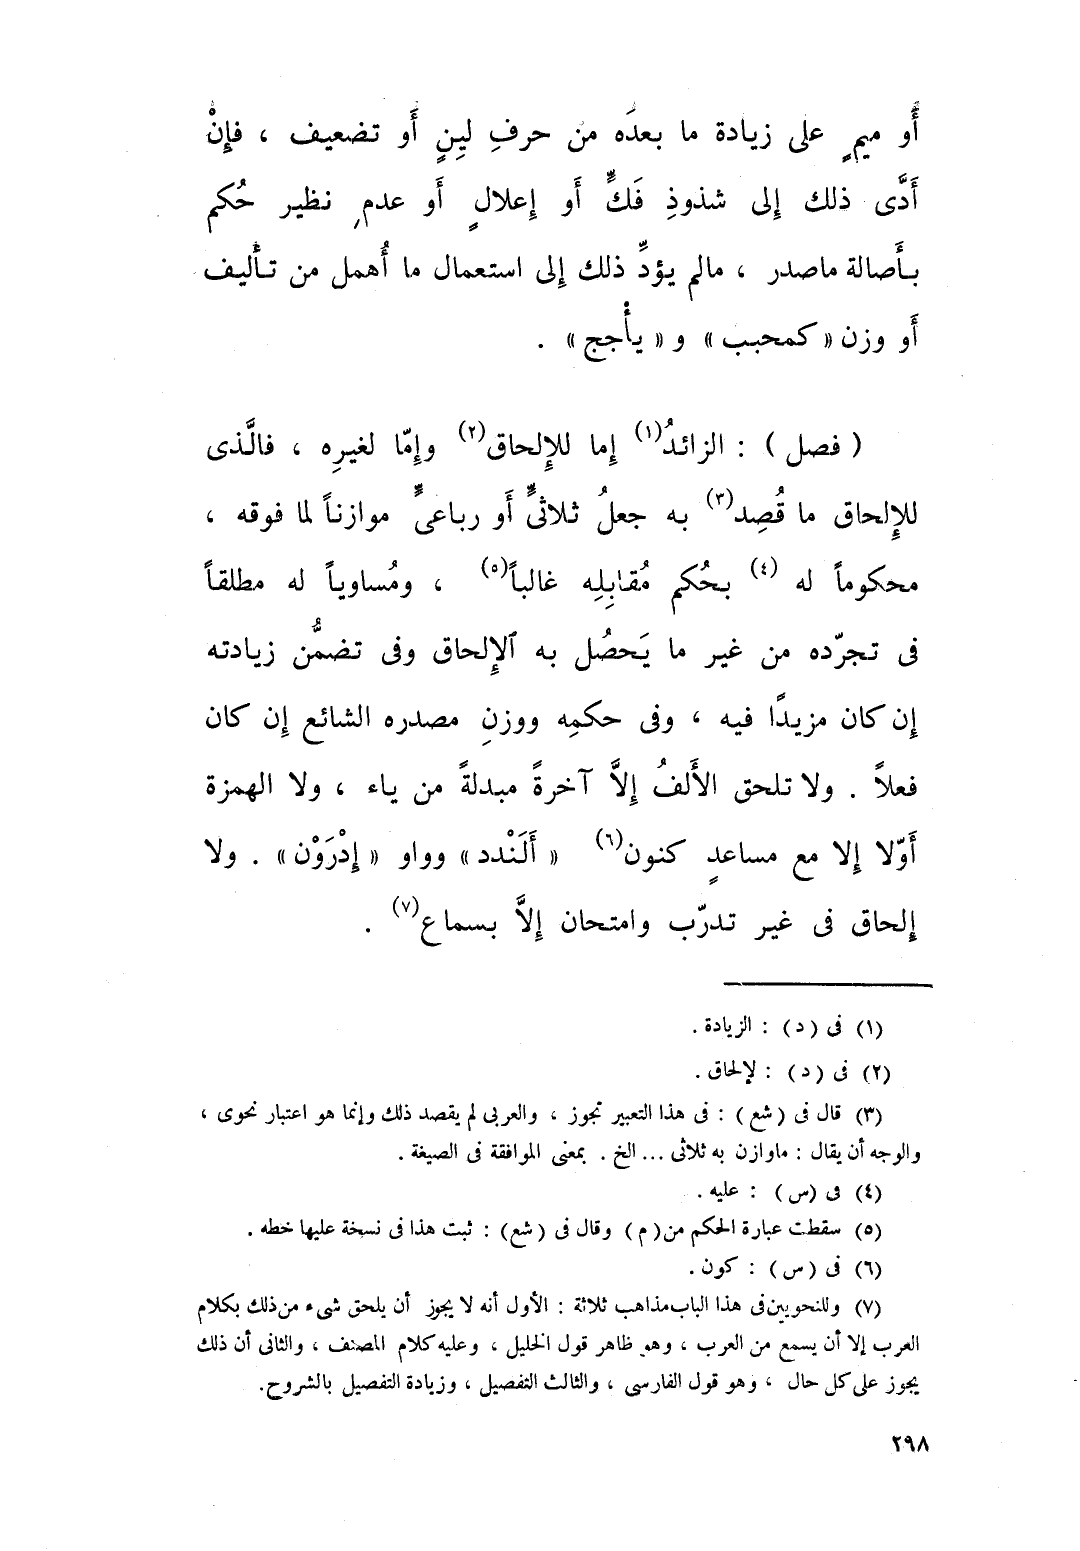 أَو ميمٍ على زيادة ما بعدَه من حرفِ لِينٍ أَو تضعيف ، فإِنْ
أَدَّى ذلك إِلى شذوذِ فَكٍّ أَو إِعلالٍ أَو عدمِ نظير حُكم
بأَصالة ماصدر ، مالم يؤدِّ ذلك إِلى استعمال ما أُهمل من تأْليف
أَو وزن « كمحبب » و « يأْجج » .
( فصل ) : الزائدُ(١) إِما للإِلحاق(٢) وإِمّا لغيرِه ، فالَّذى
للإِلحاق ما قُصِد(٣) به جعلُ ثلاثىٍّ أَو رباعىٍّ موازناً لما فوقه ،
محكوماً له (٤) بحُكم مُقابِلِه غالباً(٥) ، ومُساوياً له مطلقاً
فى تجرّده من غير ما يَحصُل به الإِلحاق وفى تضمُّن زيادته
إِن كان مزيدًا فيه ، وفى حكمِه ووزنِ مصدره الشائع إِن كان
فعلاً . ولا تلحق الأَلفُ إِلاَّ آخرةً مبدلةً من ياء ، ولا الهمزة
أَوّلا إِلا مع مساعدٍ كنون(٦) « أَلَنْدد » وواو « إِدْرَوْن » . ولا
إِلحاق فى غير تدرّب وامتحان إِلاَّ بسماع(٧) .
(١) فى ( د ) : الزيادة .
(٢) فى ( د ) : لإلحاق .
(٣) قال فى ( شع ) : فى هذا التعبير تجوز ، والعربى لم يقصد ذلك وإنما هو اعتبار نحوى ،
والوجه أن يقال : ماوازن به ثلاثى ... الخ . بمعنى الموافقة فى الصيغة .
(٤) فى ( س ) : عليه .
(٥) سقطت عبارة الحكم من ( م ) وقال فى ( شع ) : ثبت هذا فى نسخة عليها خطه .
(٦) فى ( س ) : كون .
(٧) وللنحويين فى هذا الباب مذاهب ثلاثة : الأول أنه لا يجوز أن يلحق شىء من ذلك بكلام
العرب إلا أن يسمع من العرب ، وهو ظاهر قول الخليل ، وعليه كلام المصنف ، والثانى أن ذلك
يجوز على كل حال ، وهو قول الفارسى ، والثالث التفصيل ، وزيادة التفصيل بالشروح .
٢٩٨